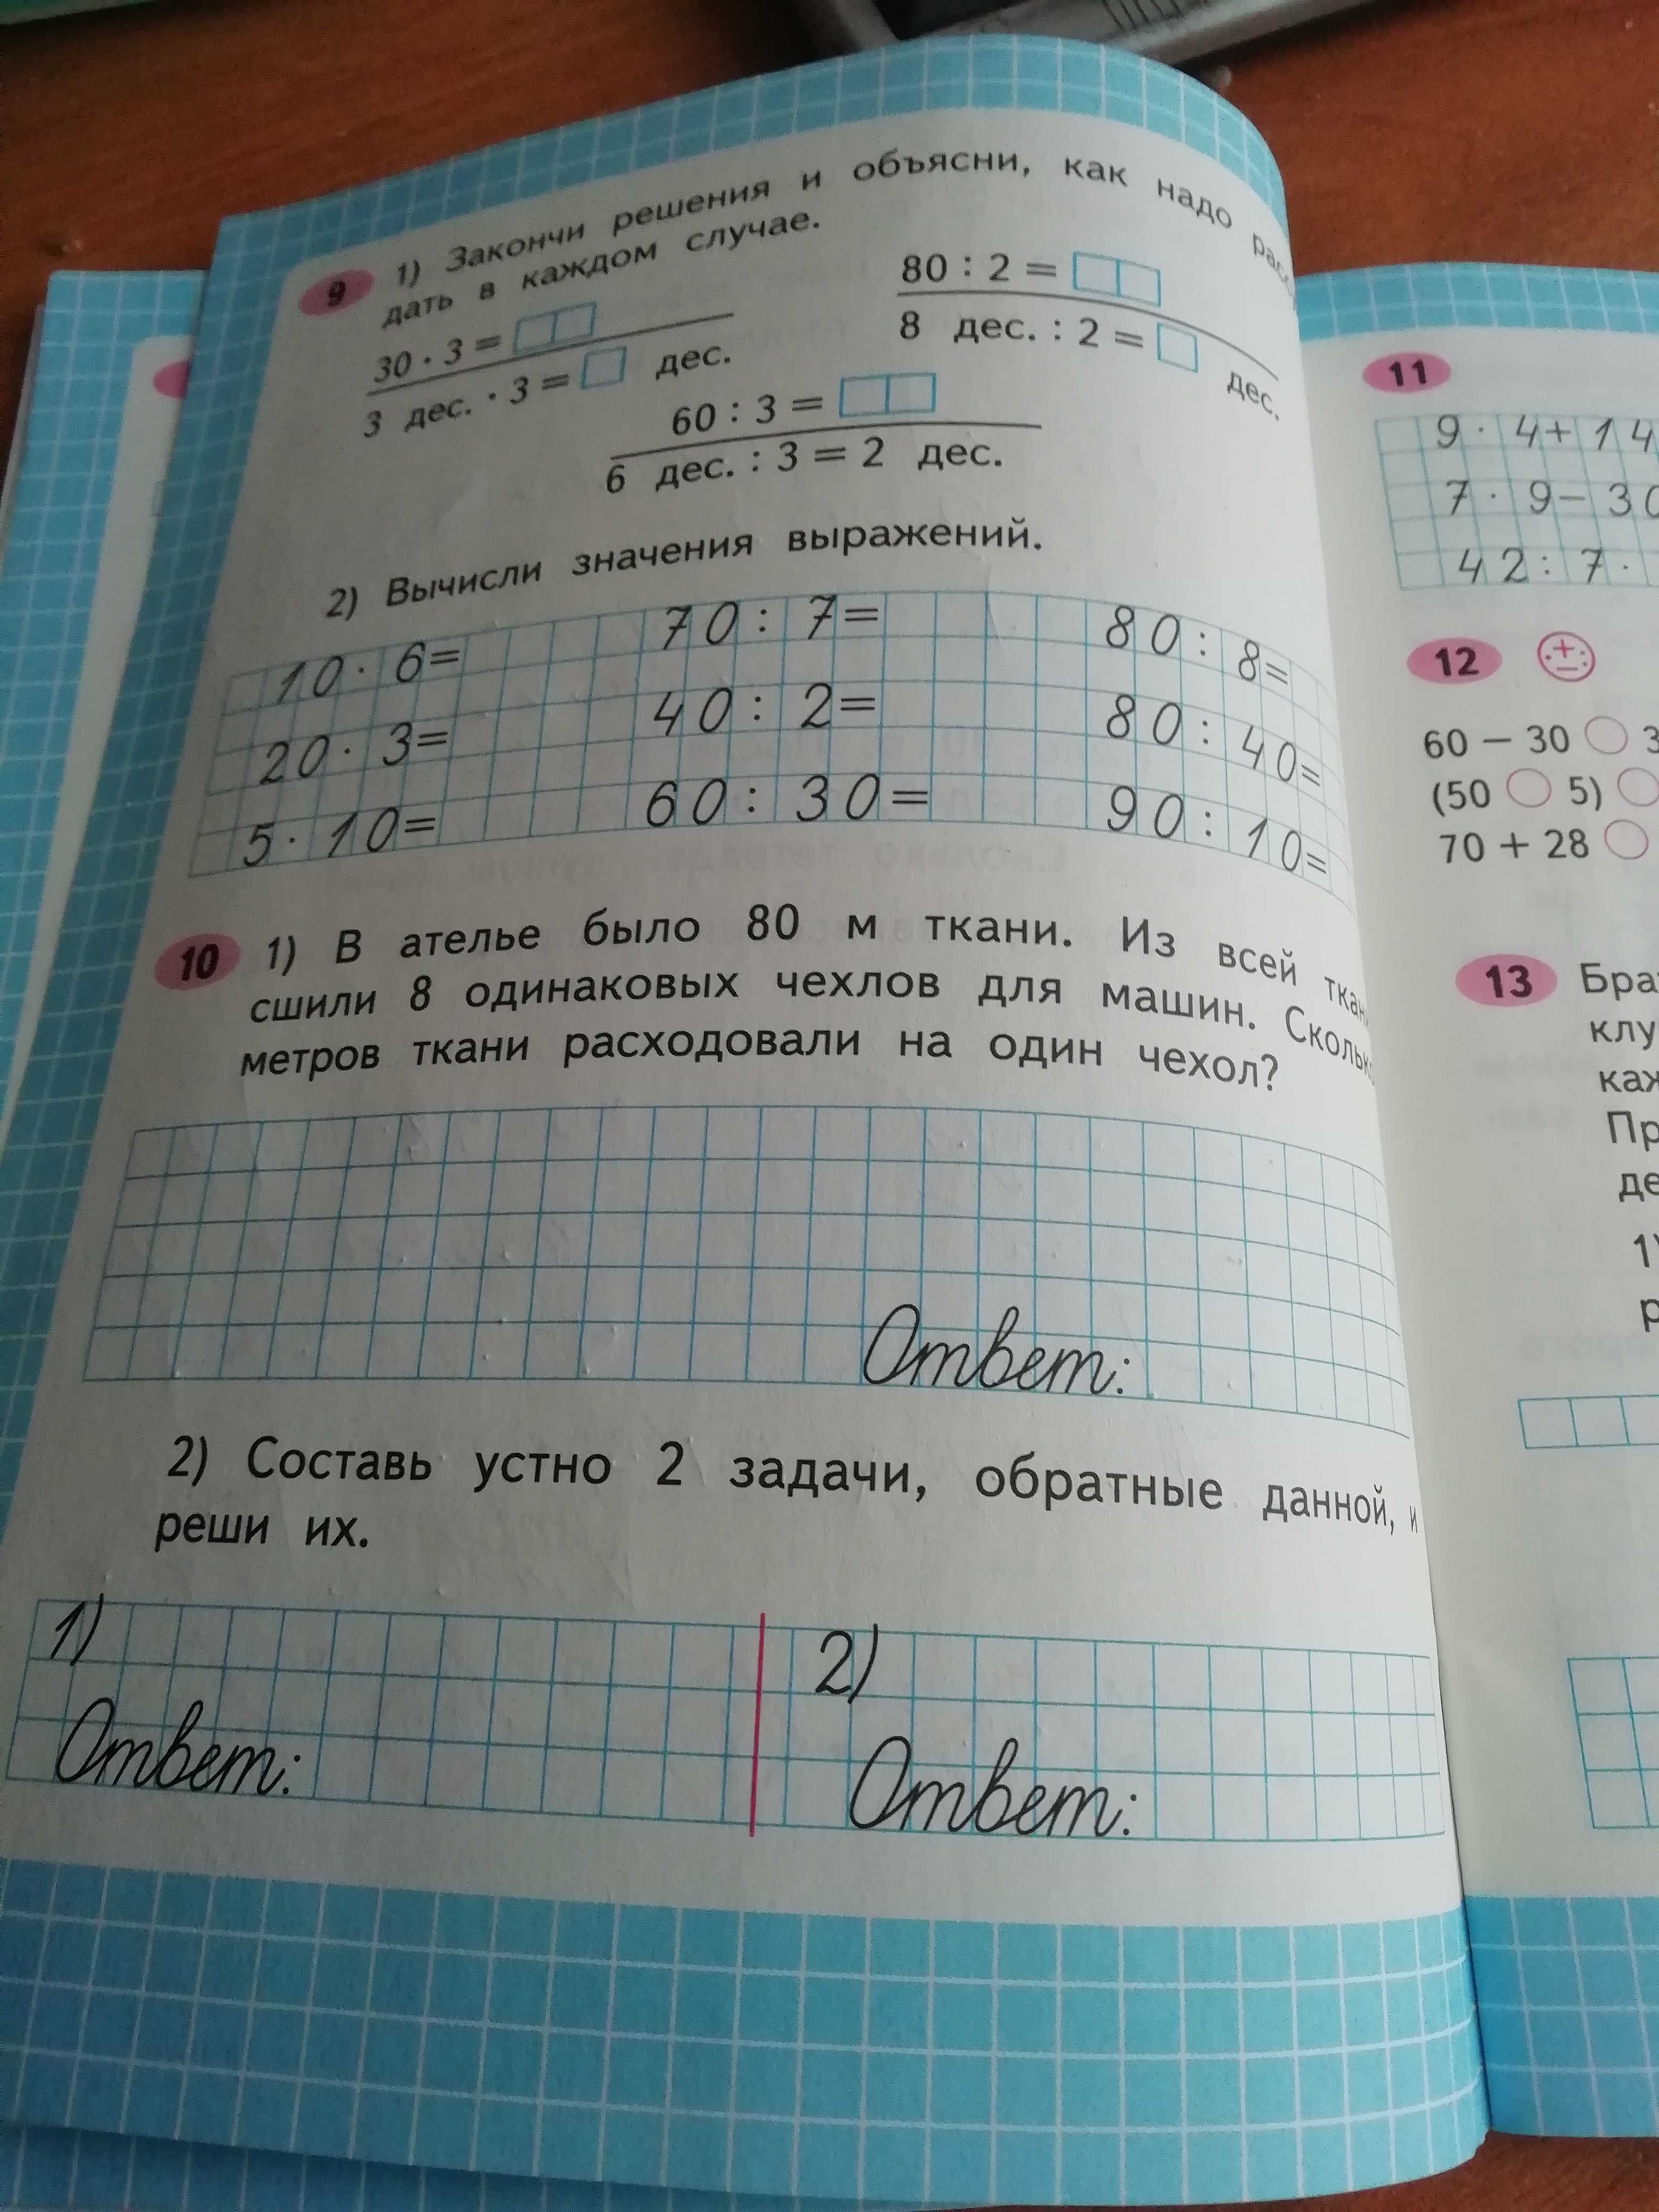 9 1) Закончи решения и объясни, как надо
дать в каждом случае.
30 · 3 =
3 дес. · 3 = дес.
80 : 2 =
8 дес. : 2 = дес.
60 : 3 =
6 дес. : 3 = 2 дес.
2) Вычисли значения выражений.
10 · 6= 70 : 7= 80 : 8=
20 · 3= 40 : 2= 80 : 40=
5 · 10= 60 : 30= 90 : 10=
10 1) В ателье было 80 м ткани. Из всей ткани
сшили 8 одинаковых чехлов для машин. Сколько
метров ткани расходовали на один чехол?
Ответ:
2) Составь устно 2 задачи, обратные данной, и
реши их.
1) 2)
Ответ: Ответ:
11
9 · 4+14
7 · 9−30
42 : 7 ·
12
60 − 30 3
(50 5)
70 + 28
13
1)